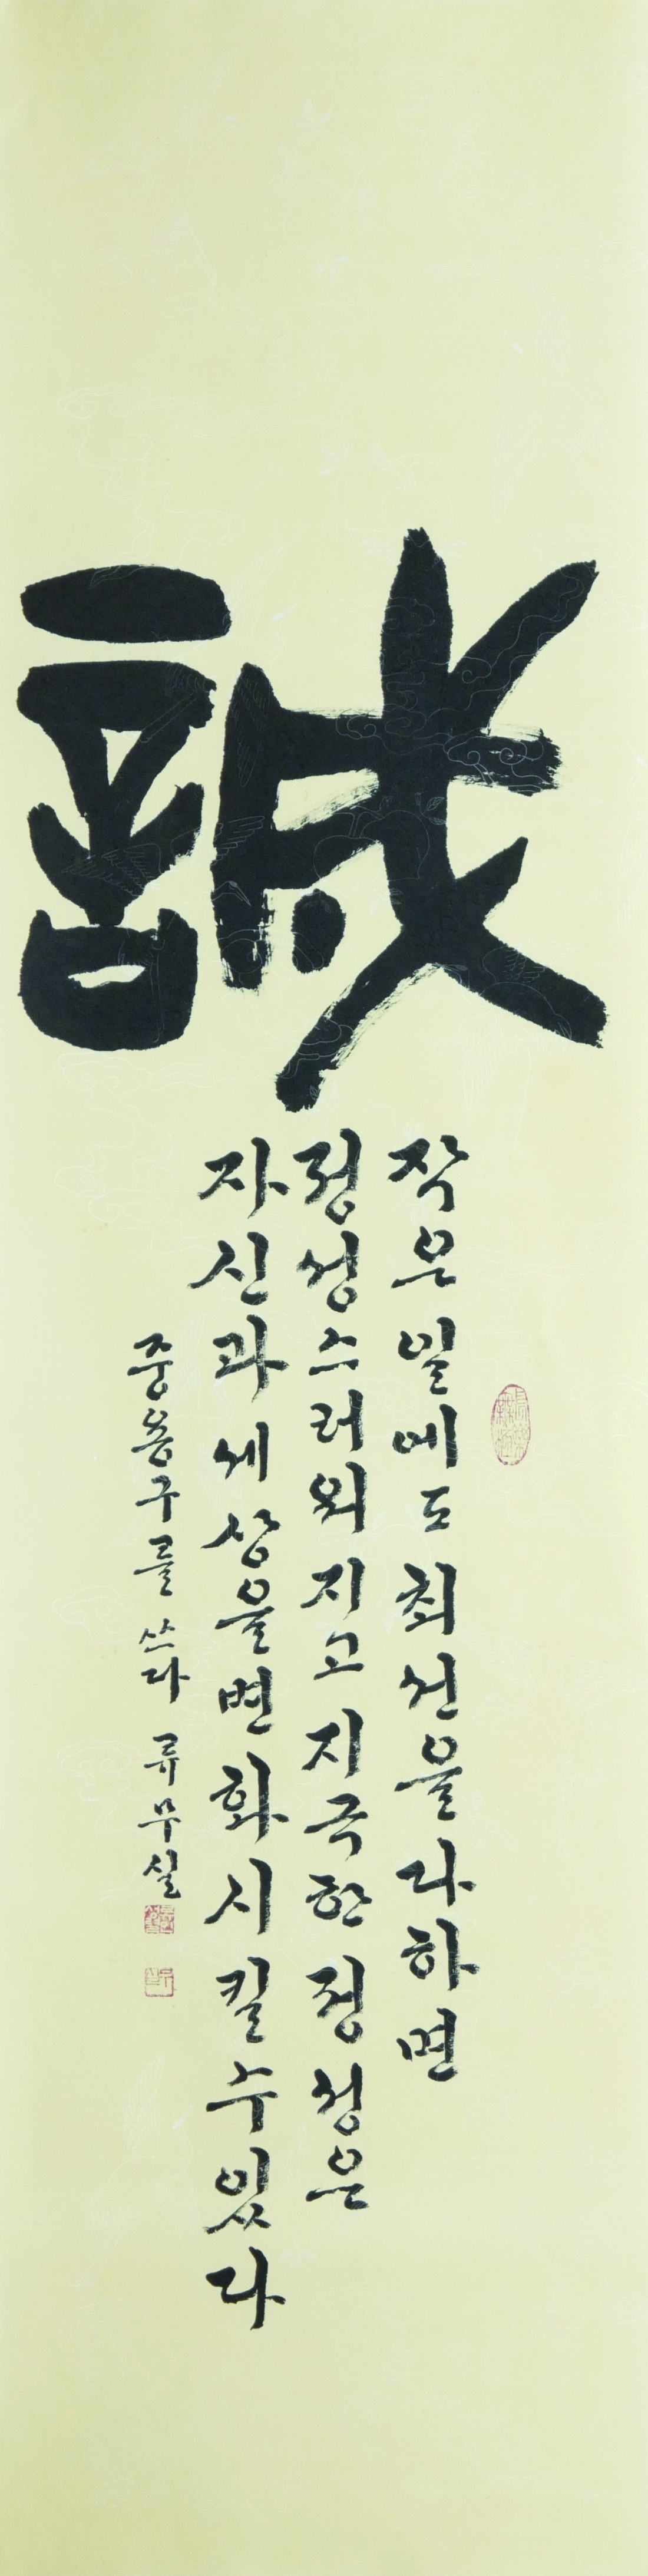 誠
작은일에도최선을다하면
정성스러워지고지극한정성은
자신과세상을변화시킬수있다
중용구를 쓰다 류무실